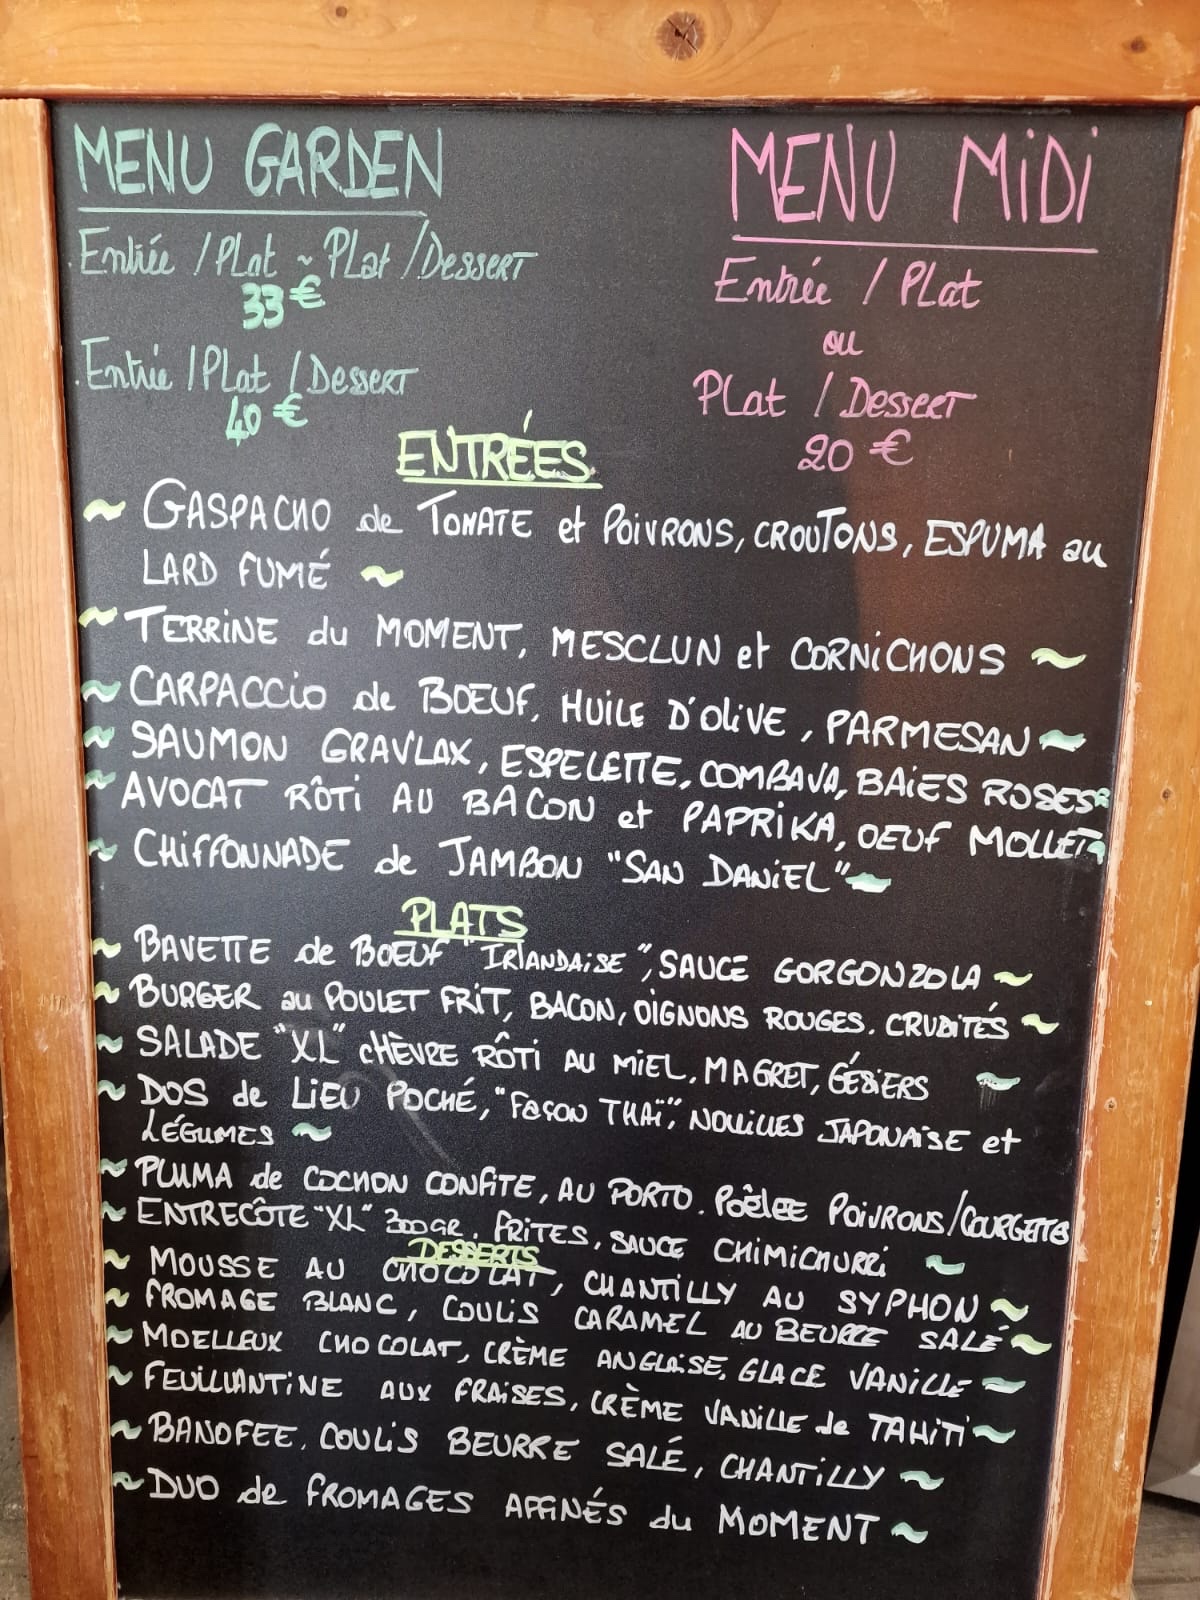 MENU GARDEN
Entrée / Plat ~ Plat / Dessert
33 €
Entrée / Plat / Dessert
40 €
MENU MiDi
Entrée / Plat
ou
Plat / Dessert
20 €
ENTRÉES
~ GASPACHO de TOMATE et POIVRONS, CROUTONS, ESPUMA au
LARD FUMÉ ~
~ TERRINE du MOMENT, MESCLUN et CORNICHONS ~
~ CARPACCIO de BOEUF, HUILE D'OLIVE, PARMESAN ~
~ SAUMON GRAVLAX, ESPELETTE, COMBAVA, BAIES ROSES ~
~ AVOCAT RÔTI AU BACON et PAPRIKA, OEUF MOLLET ~
~ CHIFFONNADE de JAMBON "SAN DANIEL" ~
PLATS
~ BAVETTE de BOEUF "IRLANDAISE", SAUCE GORGONZOLA ~
~ BURGER au POULET FRIT, BACON, OIGNONS ROUGES. CRUDITÉS ~
~ SALADE "XL" CHÈVRE RÔTI AU MIEL, MAGRET, GÉSIERS ~
~ DOS de LIEU POCHÉ, "FAÇON THAÏ", NOUILLES JAPONAISE et
LÉGUMES ~
~ PLUMA de COCHON CONFITE, AU PORTO. POÊLEE POIVRONS/COURGETTES
~ ENTRECÔTE "XL" 300GR. FRITES, SAUCE CHIMICHURRI ~
DESSERTS
~ MOUSSE AU CHOCOLAT, CHANTILLY AU SYPHON ~
~ FROMAGE BLANC, COULIS CARAMEL AU BEURRE SALÉ ~
~ MOELLEUX CHOCOLAT, CRÈME ANGLAISE, GLACE VANILLE ~
~ FEUILLANTINE AUX FRAISES, CRÈME VANILLE de TAHITI ~
~ BANOFEE. COULIS BEURRE SALÉ, CHANTILLY ~
~ DUO de FROMAGES AFFINÉS du MOMENT ~